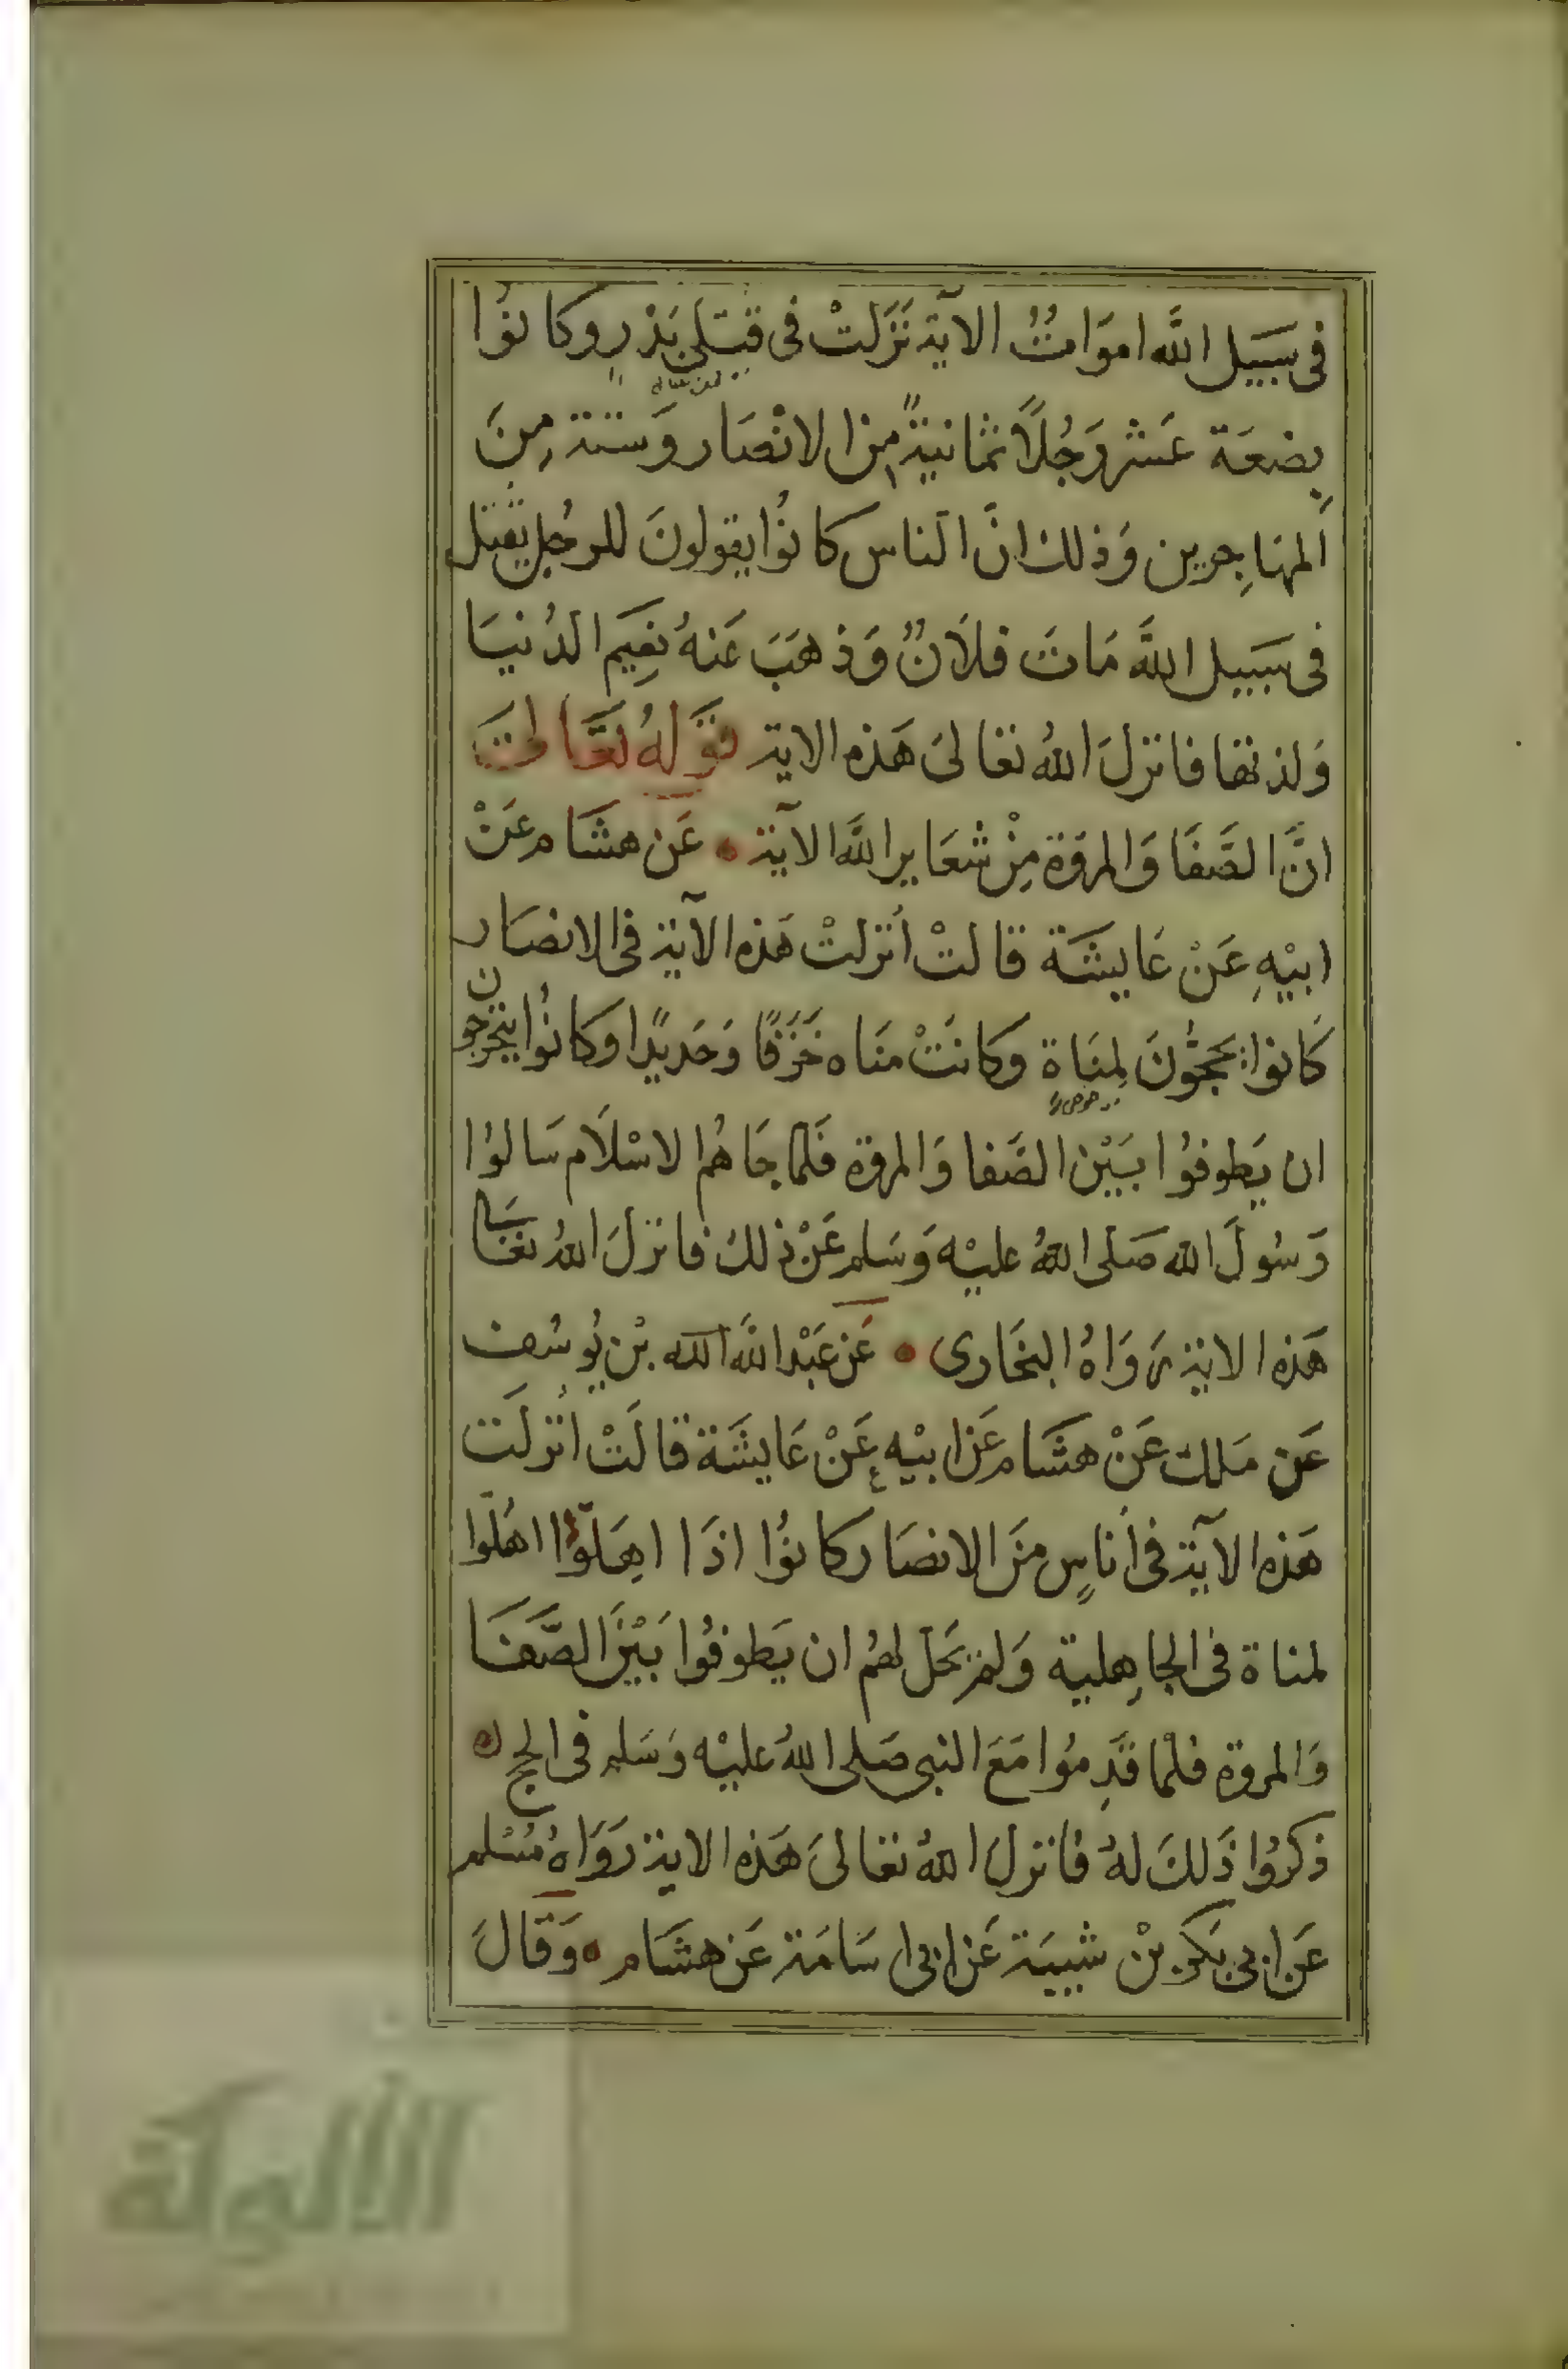 في سَبَيل اللَّه اموَاتٌ الآية نَزَلتْ في قَتلى بَدْرٍ وكانوُا
بِضعَة عَشر رَجُلاً ثمانيةً من الانْصَار وَستة مِنَ
المهاجِرين وَذلك انَّ الَناس كانوُا يقولونَ للرجُل يقتل
في سَبيل اللَّه مَات فلاَنٌ وَذهَبَ عَنهُ نعِيَم الدُنيَا
وَلذتها فانزلَ اللهُ تعالىَ هَذه الاية قوَلهُ تعَالىَ
انَّ الصَّفَا وَالمروَة مِنْ شعَاير اللَّه الآية عَن هشَام عَنْ
ابيْهِ عَنْ عَايشَة قالتْ أنزلتْ هَذه الآية في الانصَار
كاَنوا يحجُّونَ لمِنَاة وكانَتْ مَنَاه خَزَفًا وَحَديدًا وكانوُا يتحرجون
ان يَطوفوُا بَيَنْ الصَّفا وَالمروة فَلما جَاهُم الاسْلاَم سَالوُا
رَسُولَ الله صَلى اللهُ عليْه وَسَلم عَنْ ذلك فانزلَ اللهُ تعَالى
هَذه الاية رَوَاهُ البخَارى عَن عَبْد اللَّه الله بْن يُوسُف
عَن مَلك عَنْ هشَام عَن ابيْه عَنْ عَايشَة قالَتْ أنزلَت
هَذه الآية في أناسٍ منَ الانصَار كانوُا اذَا اهِلوّا اهَلّوا
لمناة في الجاهِلية وَلم يحَل لهُم ان يَطوفوُا بَيْنَ الصَّفَا
وَالمروة فلمْا قَدِموُا مَعَ النبى صَلى اللهُ عليْه وَسَلم في الحج
ذكرُوا ذَلكَ لهُ فانزلَ اللهُ تعَالىَ هَذه الاية رَوَاهُ مُسْلم
عَن ابى بَكر بْن شيبَة عَن ابى اسَامَة عَن هشَام وَقَالَ
الألوكة